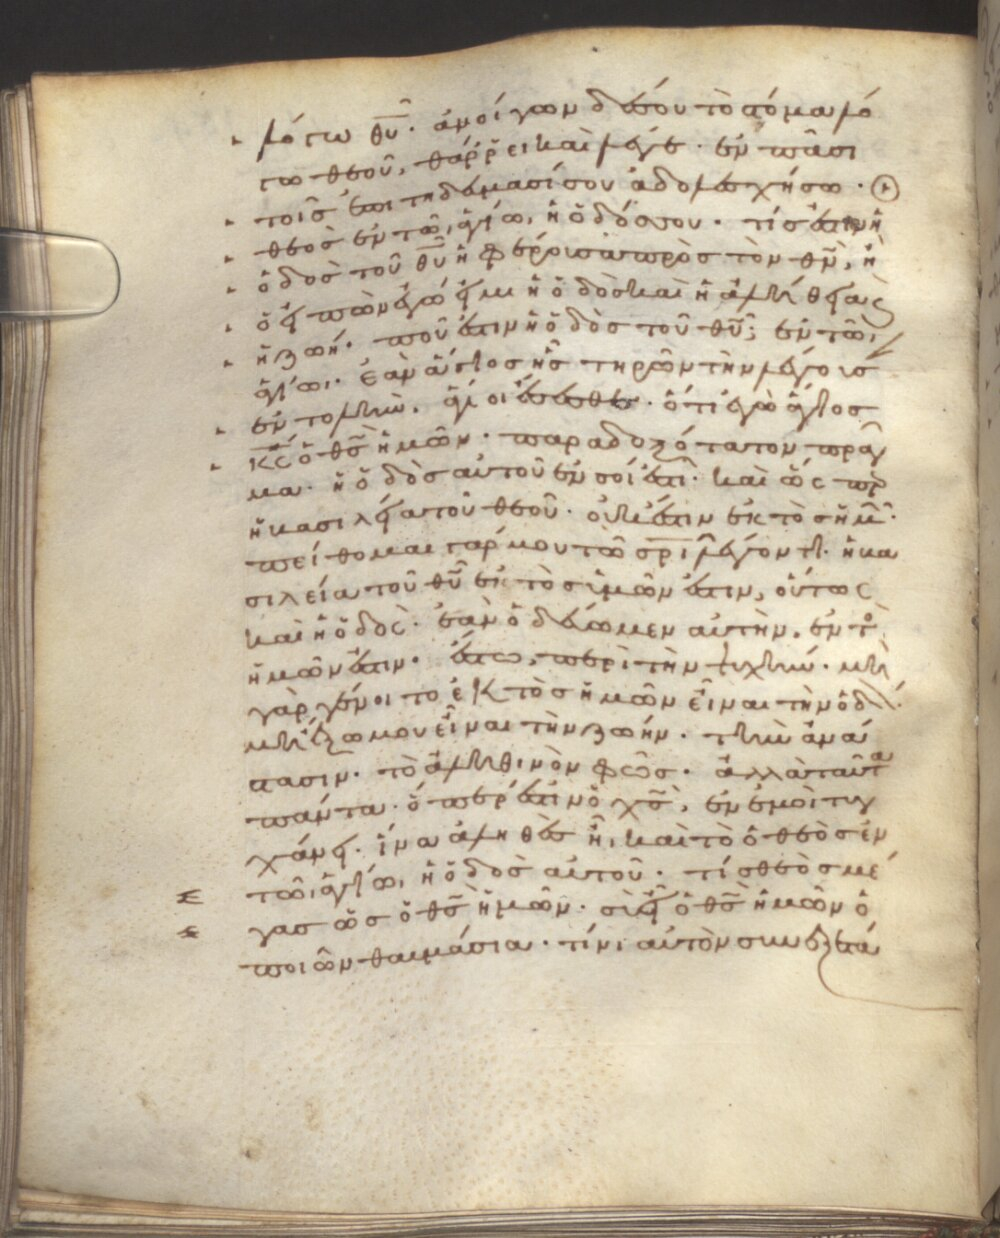 λόγω θ̅υ̅. ἀνοίγων δέ σου τὸ στόμα λό
γω θεοῦ, θάρρει καὶ λέγε. ἐν πᾶσι
τοῖς ἐπιτηδεύμασί σου ἀδολεσχήσω.
θεὸς ἐν τῶ ἁγίω ἡ ὁδός σου. τίς ἐστιν ἡ
ὁδὸς τοῦ θ̅υ̅ ἡ φέρουσα πρὸς τὸν θ̅ν̅, ἢ
ὁ εἰπὼν ἐγώ εἰμι ἡ ὁδὸς καὶ ἡ ἀλήθεια ϛ
ἡ ζωή. ποῦ ἐστιν ἡ ὁδὸς τοῦ θ̅υ̅; ἐν τῶ
ἁγίω. ἐὰν ἅγιος ἦς τηρῶν τὴν λέγουσ
ἐντολὴν. ἅγιοι ἔσεσθε. ὅτι ἐγὼ ἅγιος
κ̅ς̅ ὁ θ̅ς̅ ἡμῶν. παραδοξότατον πρᾶγ
μα. ἡ ὁδὸς αὐτοῦ ἐν σοί ἐστι. καὶ ὥσπερ
ἡ βασιλεία τοῦ θεοῦ. οὐκ ἔστιν ἐκτὸς ἡμῶν.
πείθομαι γάρ μου τῶ σ̅ρ̅ι̅ λέγοντι. ἡ βα
σιλεία τοῦ θ̅υ̅ ἐντὸς ὑμῶν ἐστιν, οὕτως
καὶ ἡ ὁδὸς. ἐὰν ὁδεύωμεν αὐτὴν. ἐντὸς
ἡμῶν ἐστιν. ἔστω, περὶ τὴν ψυχὴν. μὴ
γὰρ γένοιτο ἐκτὸς ἡμῶν εἶναι τὴν ὁδὸν.
μὴ ἔξω μου εἶναι τὴν ζωήν. τὴν ἀνά
στασιν. τὸ ἀληθινὸν φῶς. ἀλλὰ ταῦτα
πάντα. ὅπερ ἐστὶν ὁ χ̅ς̅, ἐν ἐμοὶ τυγ
χάνει. ἵνα ἀληθὲς ἦ, καὶ τὸ ὁ θεὸς ἐν
τῶ ἁγίω ἡ ὁδὸς αὐτοῦ. τίς θεὸς μέ
γας ὡς ὁ θ̅ς̅ ἡμῶν. σὺ εἶ ὁ θ̅ς̅ ἡμῶν ὁ
ποιῶν θαυμάσια. τίνι αὐτὸν συνεξετά